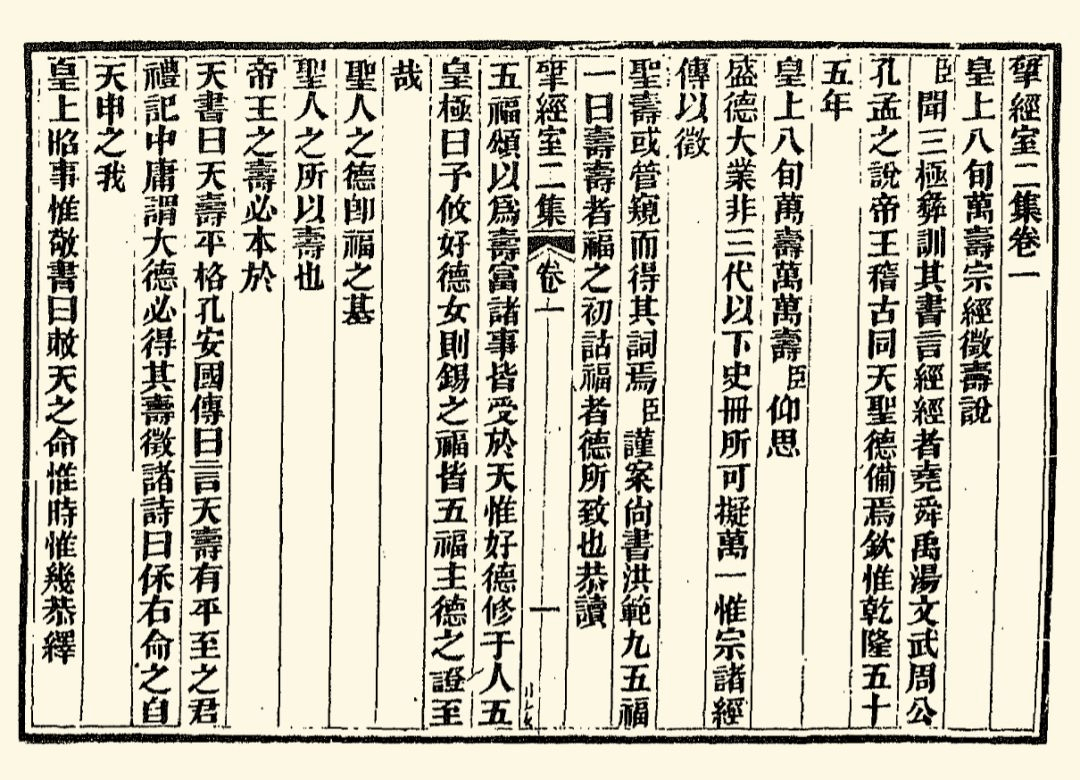 揅經室二集卷一
皇上八旬萬壽宗經徵壽說
臣聞三極彝訓其書言經經者堯舜禹湯文武周公
孔孟之說帝王稽古同天聖德備焉欽惟乾隆五十
五年
皇上八旬萬壽萬萬壽臣仰思
盛德大業非三代以下史冊所可擬萬一惟宗諸經
傳以徵
聖壽或管窺而得其詞焉臣謹案尙書洪範九五福
一曰壽壽者福之初詁福者德所致也恭讀
揅經室二集 卷一 一
五福頌以爲壽富諸事皆受於天惟好德修于人五
皇極曰予攸好德女則錫之福皆五福主德之證至
哉
聖人之德卽福之基
聖人之所以壽也
帝王之壽必本於
天書曰天壽平格孔安國傳曰言天壽有平至之君
禮記中庸謂大德必得其壽徵諸詩曰保右命之自
天申之我
皇上昭事惟敬書曰敕天之命惟時惟幾恭繹